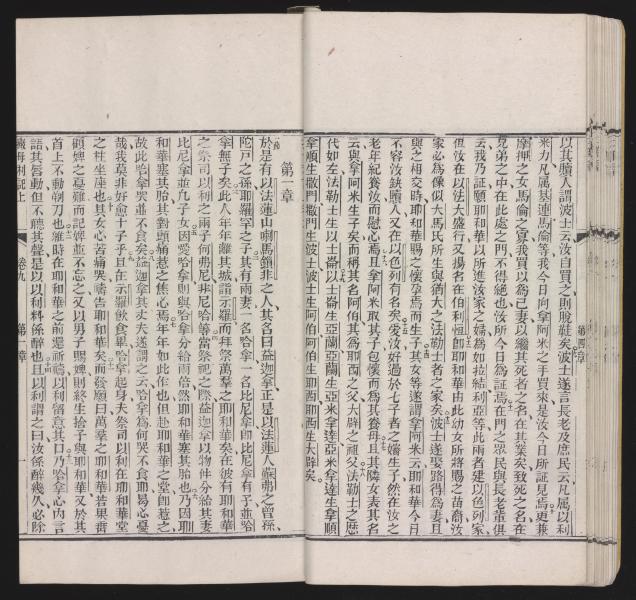 第四章
以其贖人謂波士云汝自買之則脫鞋矣波士遂言長老及庶民云凡屬以利
米力凡屬基連馬倫等我今日向拿阿米之手買來是汝今日所證見焉更兼
摩押之女馬倫之寡我買以爲己妻以繼其死者之名在其業矣致死之名在
兄弟之中在此處之門不得絕也汝所今日爲証焉在門之眾民與長老輩俱
云我乃証願耶和華以所進汝家之婦爲如拉結利亞等此兩者建以色列家
但汝在以法大盛行又揚名在伯利恒即耶和華由此幼女所將賜之苗裔汝
家必爲像似大馬氏所生與猶大之法勒士者之家矣波士遂娶路得爲妻且
與之相交時耶和華賜之懷孕焉而生子其女等遂謂拿阿米云耶和華今日
不容汝缺贖人又在以色列有名矣愛汝好過於七子者之媳生子然在汝之
老年紀養汝而慰心焉且拿阿米取其子包懷而爲其養母且其隣女表其名
云與拿阿米生子矣而稱其名阿伯其爲耶西之父大辟之祖父法勒士之歷
代如左法勒士生以士崙以士崙生亞蘭亞蘭生亞米拿達亞米拿達生拿順
拿順生撒門撒門生波士波士生阿伯阿伯生耶西耶西生大辟矣
第一章
於是有以法蓮山喇馬鎖非之人其名曰益迦拿正是以法蓮人蘇弗之曾孫
陀戸之孫耶羅罕之子其有兩妻一名哈拿一名比尼拿即比尼拿有子並哈
拿無子矣此人年年離其城詣示羅而拜祭萬羣之耶和華矣在彼有耶和華
之祭司以利之兩子何弗尼非尼哈等當祭祀之際益迦拿以物件分給其妻
比尼拿並凡子女因愛哈拿則與哈拿分給兩倍然耶和華塞其胎也乃因耶
和華塞其胎其對頭痛惹之焦心焉年年如此作也但赴耶和華之堂即惹之
故此哈拿哭並不食矣益迦拿其丈夫遂謂之云哈拿爲何哭不食耶曷心憂
哉我莫非好愈十子乎且在示羅飲食畢哈拿起身夫祭司以利在耶和華堂
之柱坐座也其女心苦痛哭禱告耶和華矣而發願曰萬羣之耶和華若果垂
顧婢之憂難而記婢並不忘之又以男子賜婢則終生拾子與耶和華又於其
首上不動剃刀也雖時在耶和華之前還祈禱以利留意其口乃哈拿心內言
語其唇動但不聽其聲是以以利料係醉也且以利謂之曰汝係醉幾久必除
撒母耳記上
卷九
第一章
一